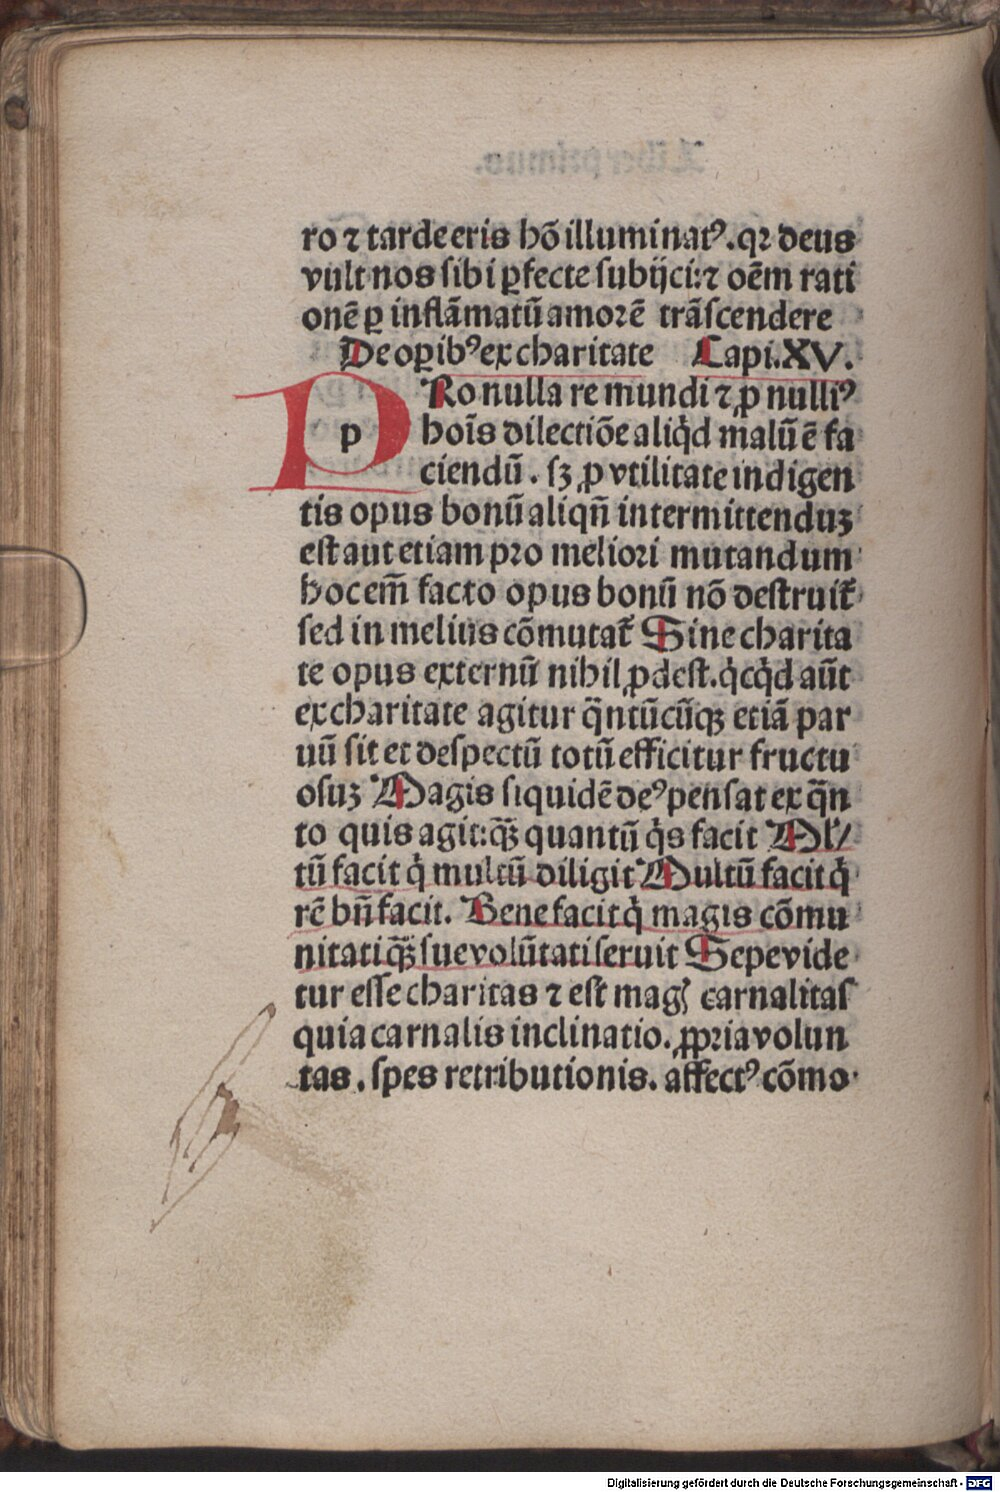 ro ⁊ tarde eris hõ illuminatꝰ. qꝛ deus
vult nos sibi ꝑfecte subijci: ⁊ oẽm rati
onẽ ꝑ inflãmatũ amoꝛẽ trãſcendere
De oꝑibꝰ ex charitate Capi. XV.
PRo nulla re mundi ⁊ ꝓ nulliꝰ
p hoĩs dilectiõe aliq̇d malũ ẽ fa
ciendũ. ſꝫ ꝓ vtilitate indigen
tis opus bonũ aliqñ intermittenduꝫ
eſt aut etiam pꝛo melioꝛi mutandum
hoc em̃ facto opus bonũ nõ deſtruit᷑
ſed in melius cõmutat᷑ Sine charita
te opus externũ nihil ꝓdeſt. q̇cq̇d aũt
ex charitate agitur q̃ntũcũqꝫ etiã par
uũ ſit et deſpectũ totũ efficitur fructu
oſuꝫ Magis ſiquidẽ deꝰ penſat ex q̃n
to quis agit: q̃ꝫ quantũ q̇s facit Ml̓/
tũ facit q̇ multũ diligit Multũ facit q̇
rẽ bñ facit. Bene facit q̇ magis cõmu
nitati q̃ꝫ ſue volũtati ſeruit Sepe vide
tur eſſe charitas ⁊ eſt magꝭ carnalitaſ
quia carnalis inclinatio. ꝓpꝛia volun
tas. ſpes retributionis. affectꝰ cõmo
Digitalisierung gefördert durch die Deutsche Forschungsgemeinschaft - DFG